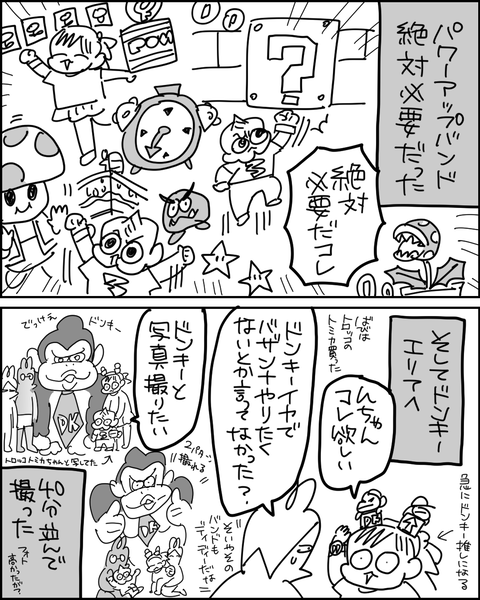 パワーアップバンド
絶対必要だった
POW
?
絶対
必要だコレ
そしてドンキー
エリアへ
トロッコの
トミカ買った
んちゃん
コレ欲しい
急にドンキー推しになる
ドンキーイヤで
バザンナやりたく
ないとか言って
なかった?
そいやその
バンドも
ディディーだな
ドンキーと
写真撮りたい
ドンキー
でっけえ
DK
トロッコトミカちゃんと写してた
2パターン
撮れる
40分並んで
撮った
フォト
高かったが?